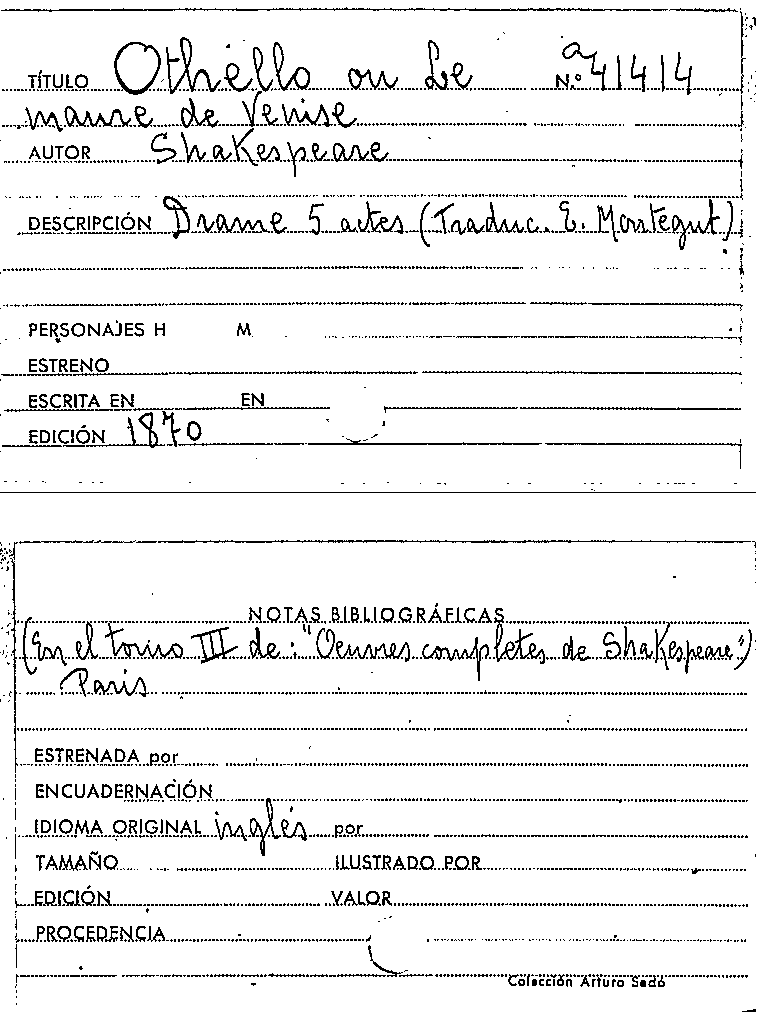 TÍTULO Othello ou Le a N.o 41414
maure de Venise
AUTOR Shakespeare
DESCRIPCIÓN Drame 5 actes (Traduc. E. Montegut)
PERSONAJES H M
ESTRENO
ESCRITA EN EN
EDICIÓN 1870
NOTAS BIBLIOGRÁFICAS
(En el tomo III de: "Oeuvres completes de Shakespeare")
Paris
ESTRENADA por
ENCUADERNACIÓN
IDIOMA ORIGINAL inglés por
TAMAÑO ILUSTRADO POR
EDICIÓN VALOR
PROCEDENCIA
Colección Arturo Sedó